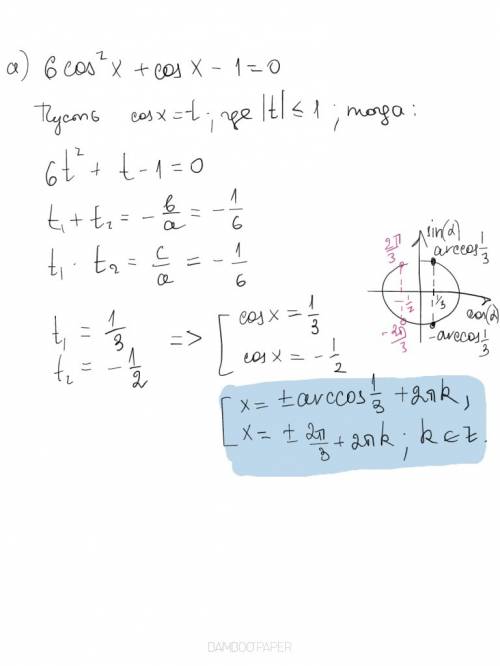 а) 6cos²x + cosx - 1 = 0
Пусть cosx = t; где |t| ≤ 1; тогда:
6t² + t - 1 = 0
t₁ + t₂ = - b/a = - 1/6
t₁ · t₂ = c/a = - 1/6
t₁ = 1/3 => [ cosx = 1/3
t₂ = - 1/2 cosx = - 1/2
sin(α)
2π/3 arccos 1/3
- 1/2 1/3 cos(α)
- 2π/3 -arccos 1/3
[ x = ± arccos 1/3 + 2πk,
x = ± 2π/3 + 2πk; k ∈ Z.
BAMBOOPAPER